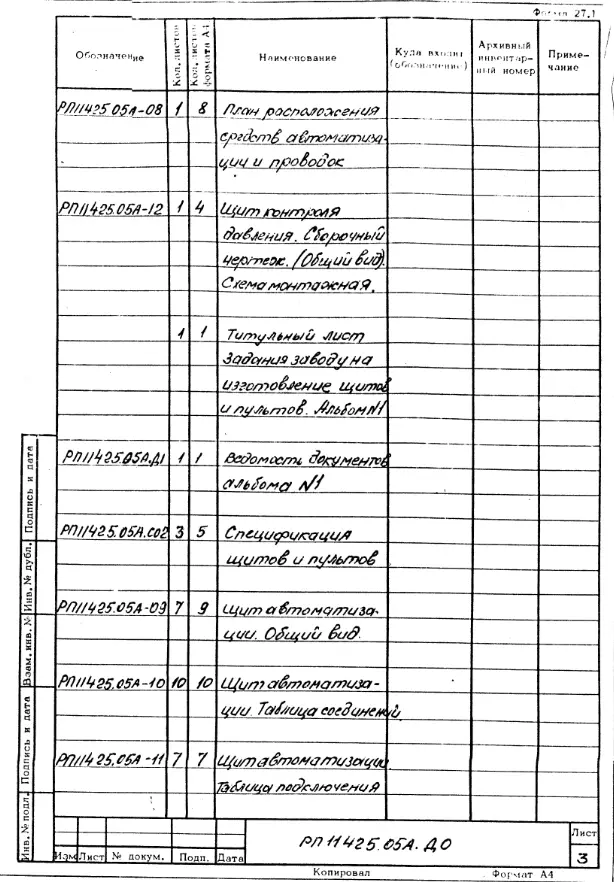 Форма 27.1
Обозначение Кол. листов Кол. листов формата А4 Наименование Куда входит (обозначение) Архивный инвентарный номер Примечание
РП11425.05А-08 1 8 План расположения
средств автоматиза-
ции и проводок
РП11425.05А-12 1 4 Щит контроля
давления. Сборочный
чертеж. (Общий вид).
Схема монтажная.
1 1 Титульный лист
Задания заводу на
изготовление щитов
и пультов. Альбом №1
РП11425.05А.Д1 1 1 Ведомость документов
альбома №1
РП11425.05А.СО2 3 5 Спецификация
щитов и пультов
РП11425.05А-09 7 9 Щит автоматиза-
ции. Общий вид.
РП11425.05А-10 10 10 Щит автоматиза-
ции Таблица соединений.
РП11425.05А-11 7 7 Щит автоматизации
Таблица подключения
Инв. № подл. Подпись и дата Взам. инв. № Инв. № дубл. Подпись и дата
РП 11425.05А. ДО
Лист
3
Изм Лист № докум. Подп. Дата
Копировал Формат А4